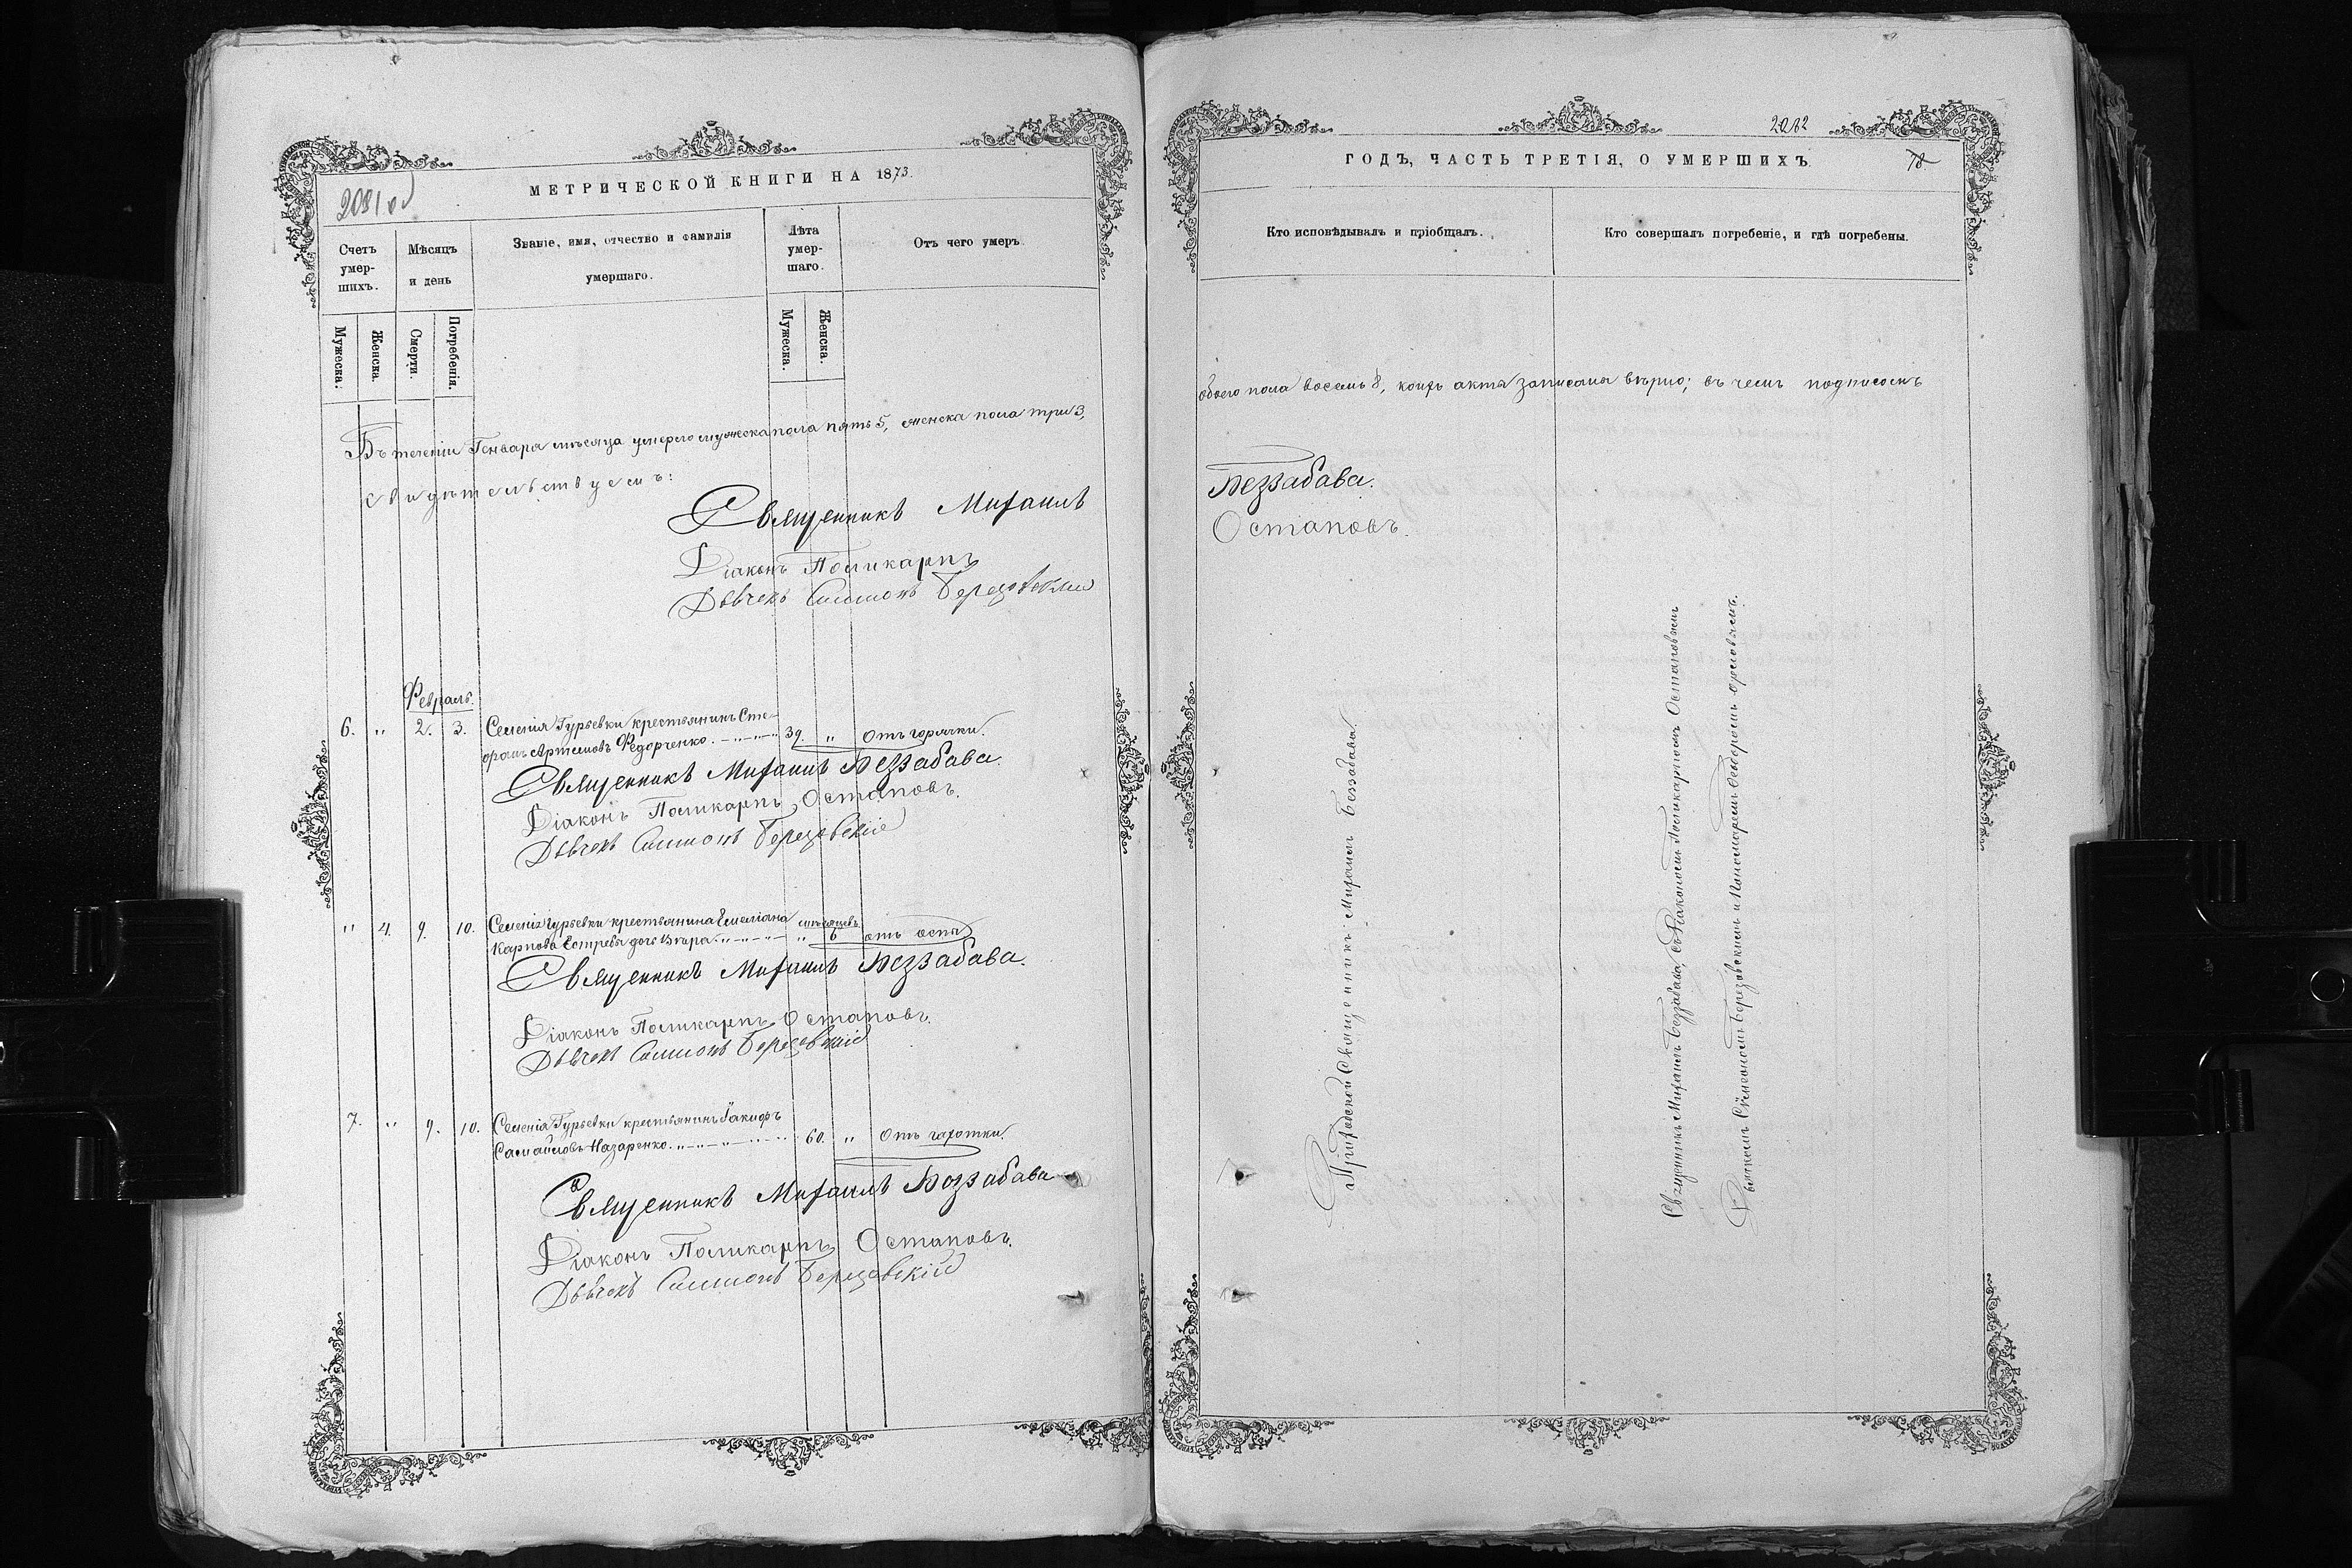 2081 об
МЕТРИЧЕСКОЙ КНИГИ НА 1873.
Счетъ умер-шихъ.
Мѣсяцъ и день
Званіе, имя, отчество и фамилія умершаго.
Лѣта умер-шаго.
Отъ чего умеръ.
Мужеска.
Женска.
Смерти.
Погребенія.
Мужеска.
Женска.
Въ теченіи Генваря мѣсяца умерло мужеска пола пять 5, женска пола три 3,
свидѣтельствуемъ:
Священникъ Михаилъ
Діаконъ Поликарпъ
Дьячекъ Симеонъ Березовскій
Февраль.
6. „ 2. 3. Селенія Гурьевки крестьянинъ Сте-
Артемовъ Федорченко. 39. „ Отъ горячки.
Священникъ Михаилъ Беззабава.
Діаконъ Поликарпъ Остаповъ.
Дьячекъ Симеонъ Березовскій
„ 4. 9. 10. Селенія Гурьевки крестьянина Емеліана мѣсяцевъ
Карпова дочь Вѣра. „ 6 отъ оспы
Священникъ Михаилъ Беззабава.
Діаконъ Поликарпъ Остаповъ.
Дьячекъ Симеонъ Березовскій
7. „ 9. 10. Селенія Гурьевки крестьянинъ Іакимъ
Самойловъ Назаренко. 60. „ Отъ чахотки.
Священникъ Михаилъ Беззабава
Діаконъ Поликарпъ Остаповъ.
Дьячекъ Симеонъ Березовскій
2082
78
ГОДЪ, ЧАСТЬ ТРЕТІЯ, О УМЕРШИХЪ
Кто исповѣдывалъ и пріобщалъ.
Кто совершалъ погребеніе, и гдѣ погребены.
обоего пола восемь 8, коихъ акты записаны вѣрно; въ чемъ подписомъ
Беззабава.
Остаповъ.
Приходской Священникъ Михаилъ Беззабава.
Священникъ Михаилъ Беззабава, съ Діакономъ Поликарпомъ Остаповымъ
Дьячкомъ Сѵмеономъ Березовскимъ и Пономаремъ Ѳеодоромъ Орловымъ.